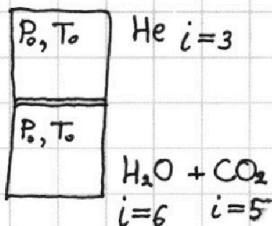 P₀, T₀ He i=3
P₀, T₀
H₂O + CO₂
i=6 i=5